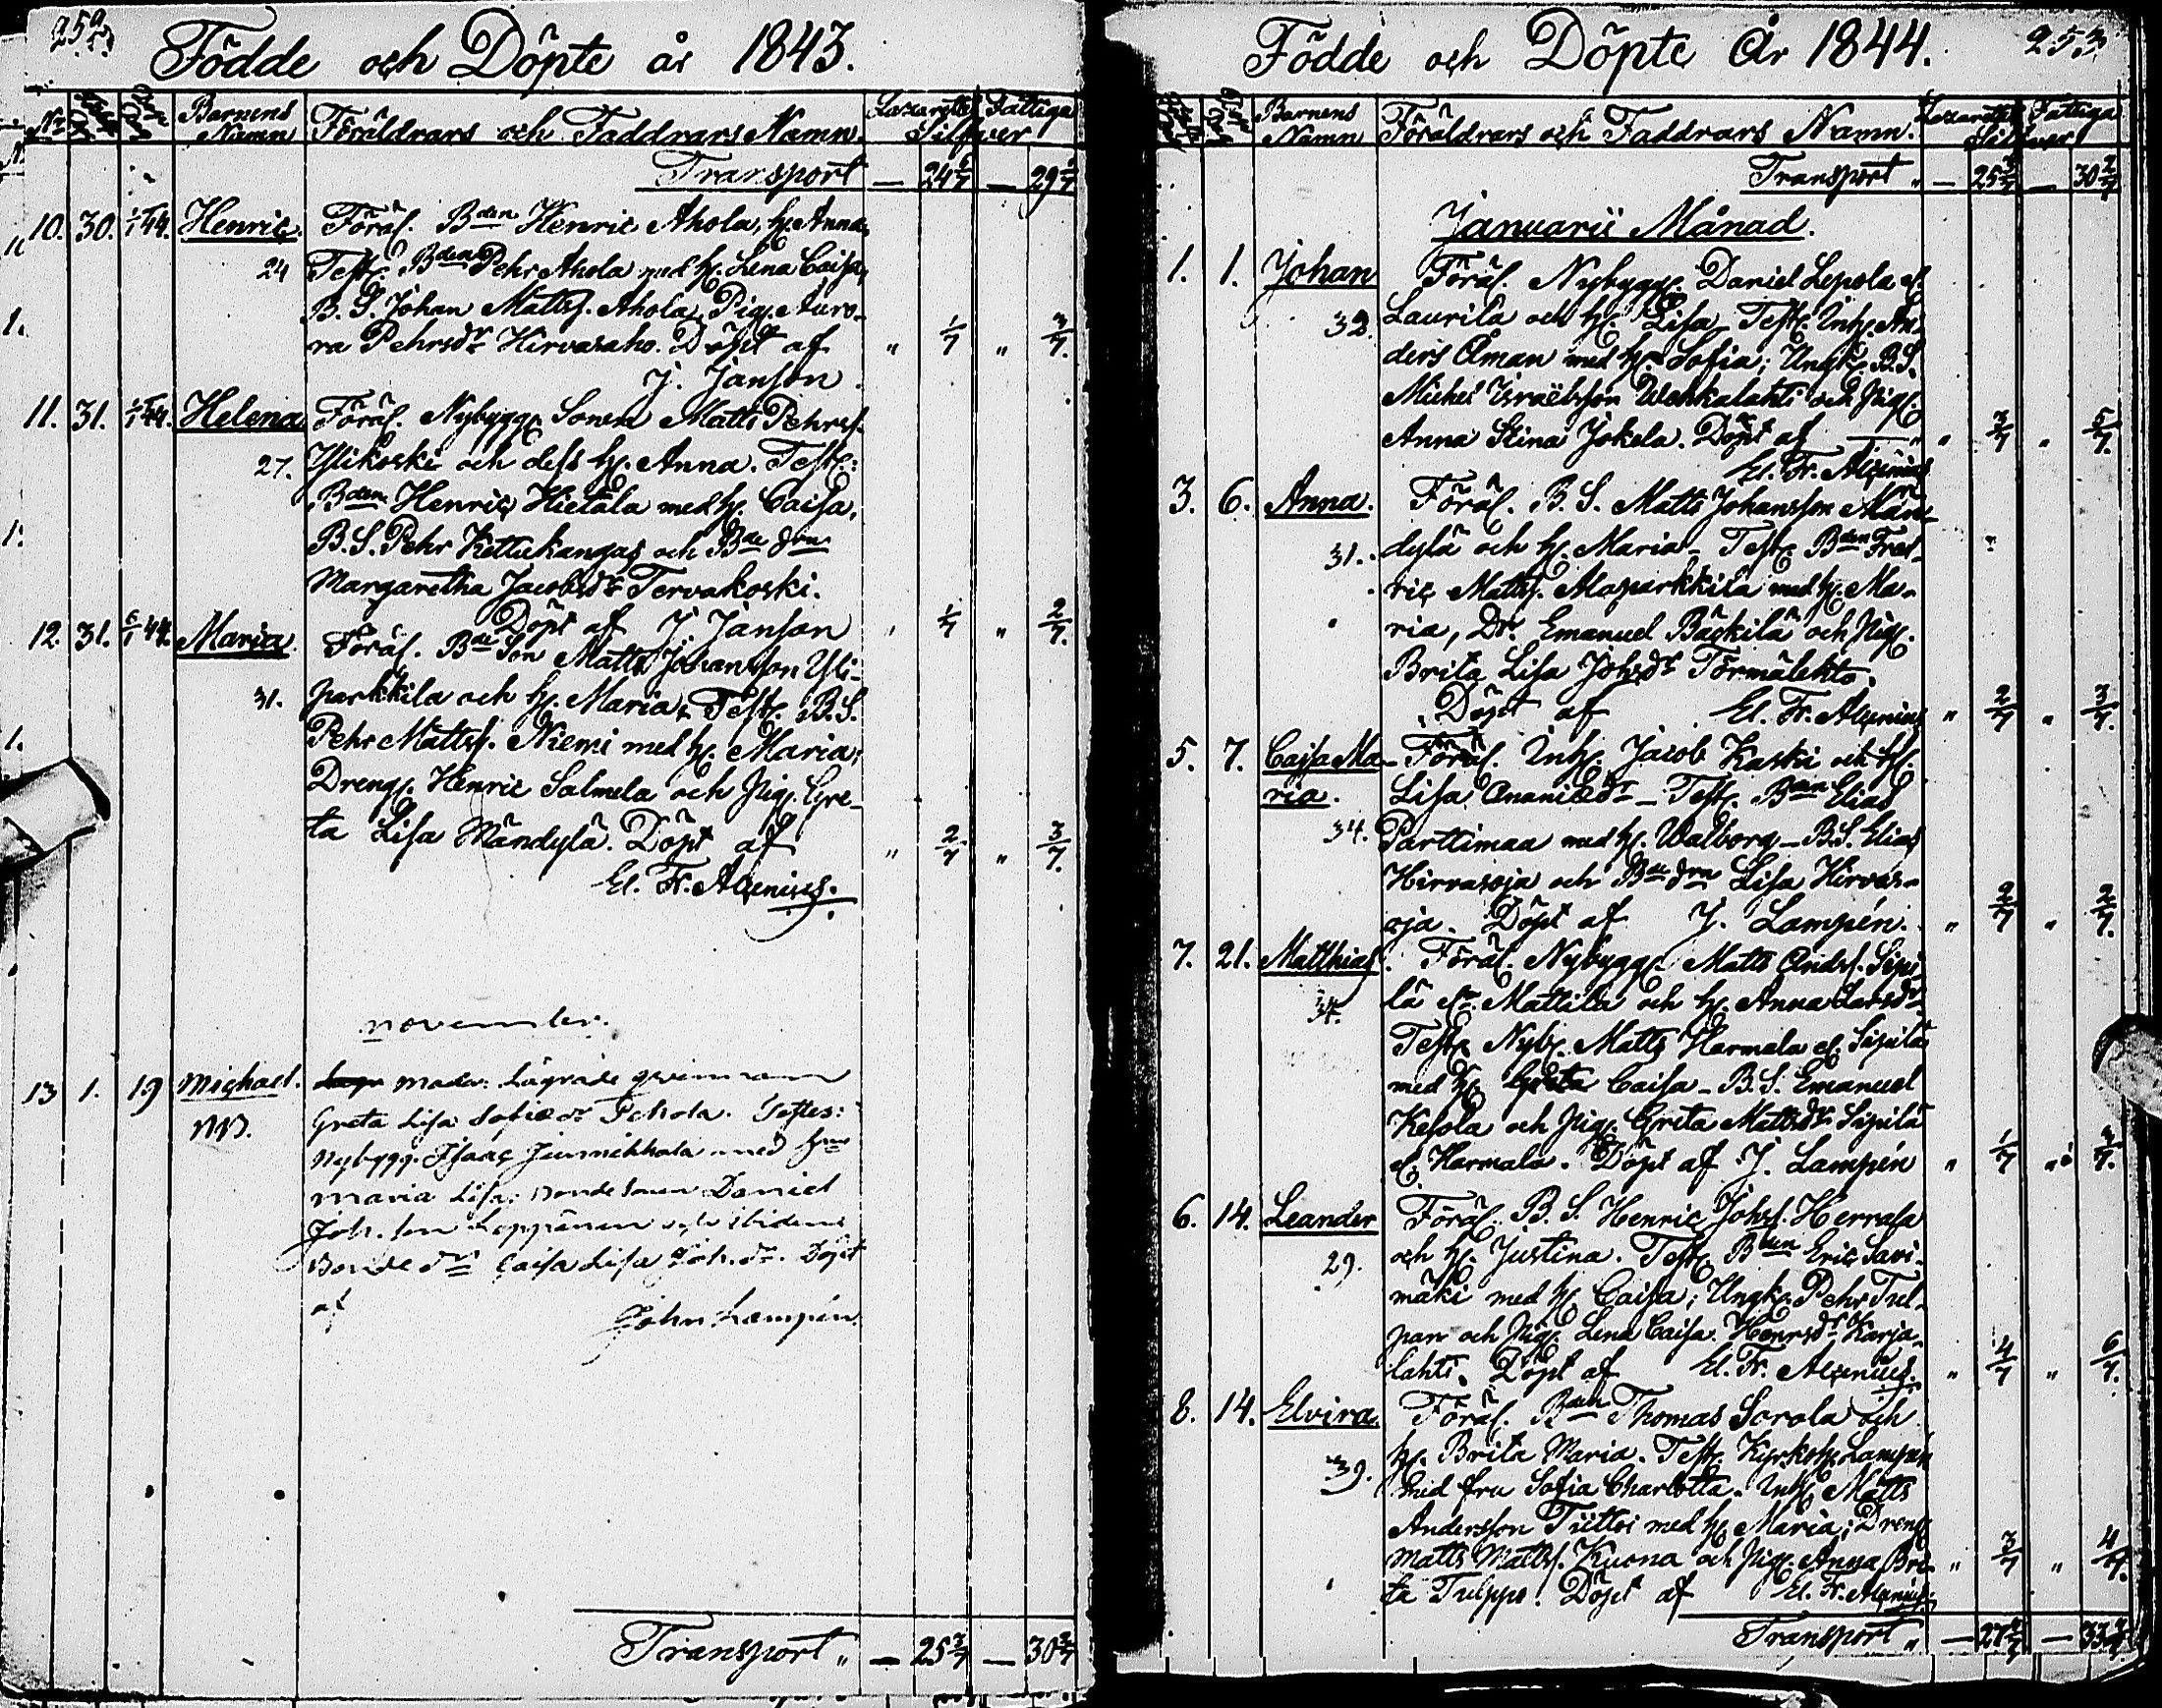 252
Födde och Döpte år 1843.
No
Barnens Namn
Föräldrars och Faddrars Namn.
Lazarettet Fattiga
Silfver
Transport — 24 6/7 — 29
10. 30. 1/1 44. Henric. Föräl. Bden Henric Ahola, h. Anna,
24 Test. Bden Pehr Ahola med h. Lena Caisa,
B. S. Johan Matts. Ahola, Pig. Auro-
ra Pehrsdr Hirvasaho. Döpt af " 1/7 " 3/7.
J. Janson.
11. 31. 1/1 44. Helena Föräl. Nybygg. Sonen Matts Pehrs.
27. Ylikoski och dess h. Anna. Test.:
Bden Henric Hietala med h. Caisa,
B. S. Pehr Kettukangas och Bde drn
Margaretha Jacobsdr Tervakoski.
Döpt af J. Janson " 1/7 " 2/7.
12. 31. 6/1 44. Maria. Föräl. Bde Son Matts Johansson Yli-
31. parkkila och h. Maria, Test. B. S.
Pehr Mattss. Niemi med h. Maria;
Dreng. Henric Salmela och Pig. Gre-
ta Lisa Mändylä. Döpt af " 2/7 " 3/7.
El. Fr. Alcenius.
november.
13 1. 19 Michael. moder: Lägrade qvinnan
Greta Lisa Sofiædr Pehola. Testes:
Nybygg. Isaac med
Maria Lisa; Bondesonen Daniel
Joh. son Leppänen och
Bonde dr Caisa Lisa Joh. dr. Döpt
af
John Lampén.
Transport " — 25 3/7 — 30 2/7
Födde och Döpte År 1844. 253
Barnens Namn
Föräldrars och Faddrars Namn.
Lazarettet Fattiga
Silfver
Transport " — 25 3/7 — 30 2/7
Januarii Månad.
1. 1. Johan Föräl. Nybygg. Daniel Lepola el.
32. Laurila och h. Lisa, Test. Inh. An-
ders Åman med h. Sofia; Ungk. B. S.
Michel Israëlsson Wehkalahti och Pig.
Anna Stina Jokela. Döpt af — " 3/7 " 5/7.
El. Fr. Alcenius
3. 6. Anna. Föräl. B. S. Matts Johansson Män-
31. dylä och h. Maria - Test. Bden Fred-
ric Matts. Alaparkkila med h. Ma-
ria, Dr. Emanuel Bäckilä och Pig.
Brita Lisa Johsdr Törmälehto.
Döpt af El. Fr. Alcenius " 2/7 " 3/7.
5. 7. Caisa Ma- Föräl. Inh. Jacob Kaski och h.
ria. Lisa Ananiædr - Test. Bden Elias
34. Parttimaa med h. Walborg - B. S. Elias
Hirvasoja och Bde drn Lisa Hirvas-
oja. Döpt af J. Lampén. " 2/7 " 2/7.
7. 21. Matthias. Föräl. Nybygg. Matts Ands. Sipi-
34. lä el. Mattila och h. Anna Larsdr
Test. Nyb. Matts Harmala el. Sipilä
med h. Greta Caisa - B. S. Emanuel
Kesola och Pig. Greta Mattsdr Sipilä
el. Harmala. Döpt af J. Lampén " 1/7 "
6. 14. Leander Föräl. B. S. Henric Johs. Herrala
29. och h. Justina. Test. Bden Eric Savi-
mäki med h. Caisa; Ungk. Pehr Tul-
pan och Pig. Lena Caisa Henrsdr Karja-
lahti. Döpt af El. Fr. Alcenius. " 4/7 " 6/7.
8. 14. Elvira. Föräl. Bden Thomas Sorola och
39. h. Brita Maria. Test. Kyrkoh. Lampén
med fru Sofia Charlotta. Inh. Matts
Andersson Tiitto med h. Maria; Dreng
Matts Matts. Kuona och Pig. Anna Bri- " 3/7 " 4/7.
ta Tulppo. Döpt af El. Fr. Alcenius.
Transport " — 27 — 33